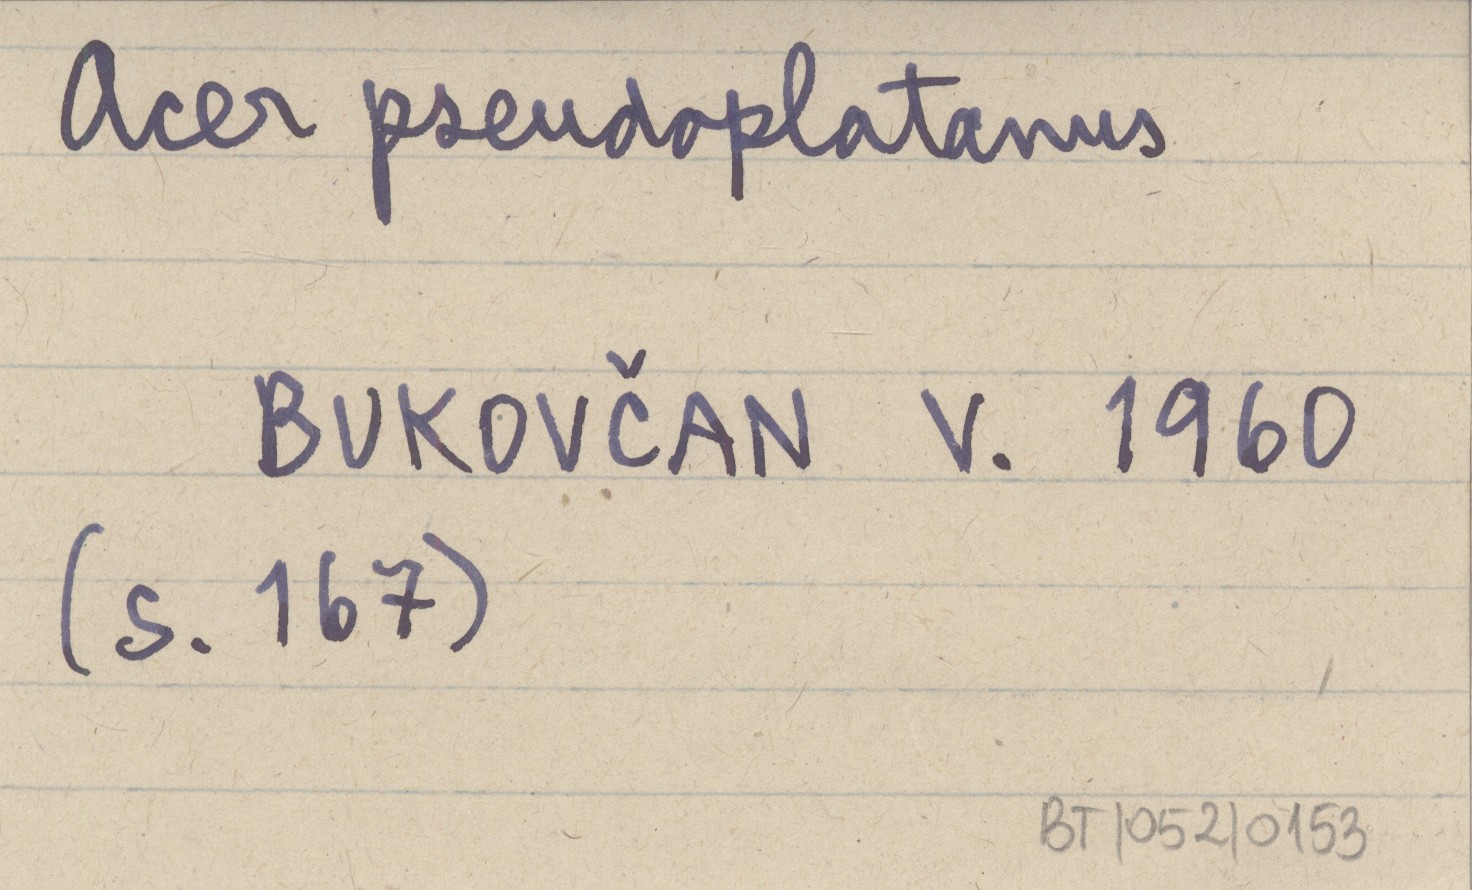 Acer pseudoplatanus
BUKOVČAN V. 1960
(s. 167)
BT/052/0153